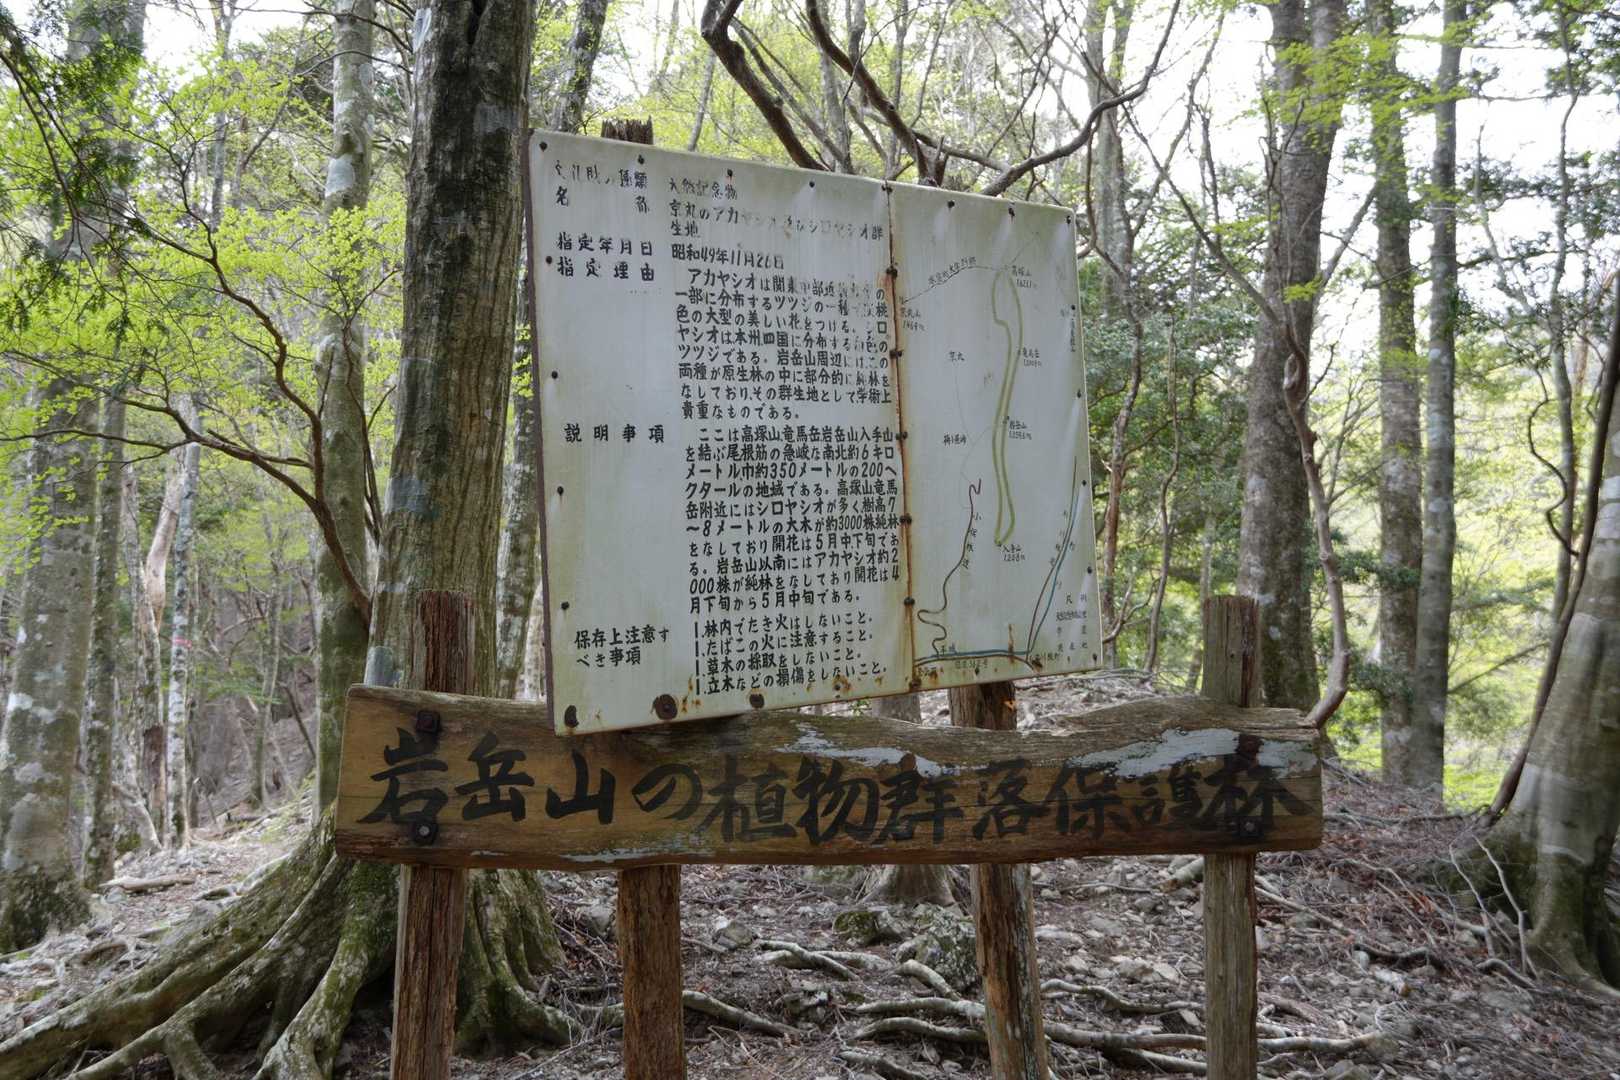 種類 天然記念物
名称 京丸のアカヤシオ及びシロヤシオ群
生地
指定年月日 昭和49年11月26日
指定理由 アカヤシオは関東中部近畿
一部に分布するツツジの一種で桃
色の大型の美しい花をつける。シロ
ヤシオは本州四国に分布する白色の
ツツジである。岩岳山周辺にはこの
両種が原生林の中に部分的に純林を
なしており,その群生地として学術上
貴重なものである。
説明事項 ここは高塚山,竜馬岳岩岳山入手山
を結ぶ尾根筋の急峻な南北約6キロ
メートル巾約350メートルの200ヘ
クタールの地域である。高塚山,竜馬
岳附近にはシロヤシオが多く,樹高7
～8メートルの大木が約3000株純林
をなしており開花は5月中下旬であ
る。岩岳山以南にはアカヤシオ約2
000株が純林をなしており開花は4
月下旬から5月中旬である。
保存上注意す
べき事項
1.林内でたき火はしないこと。
1.たばこの火に注意すること。
1.草木の採取をしないこと。
1.立木などの損傷をしないこと。
高塚山
京丸山
京丸
竜馬岳
岩岳山
入手山
凡例
岩岳山の植物群落保護林